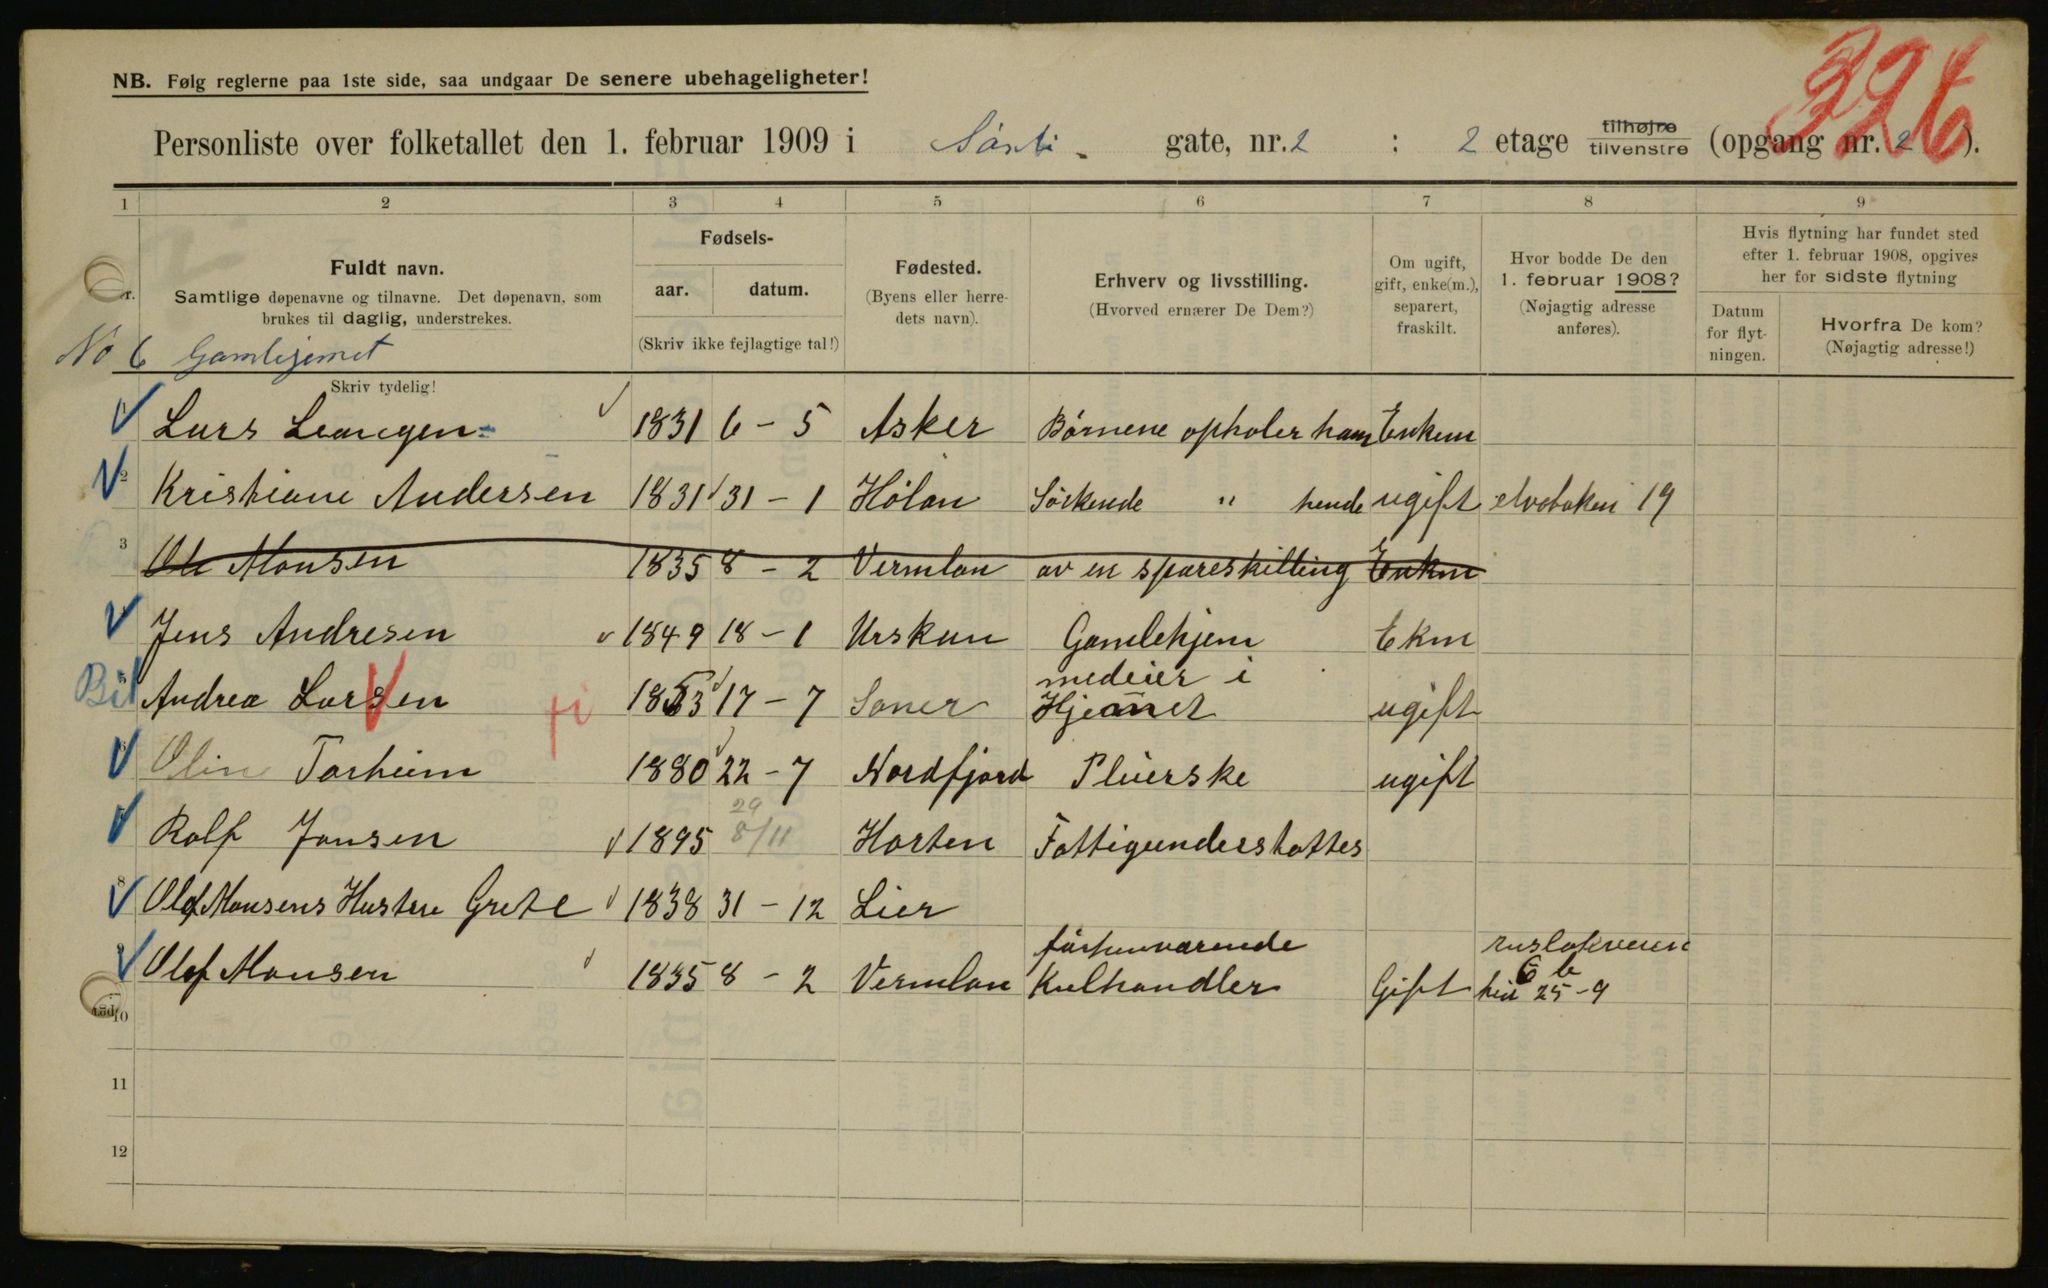 326
NB. Følg reglerne paa 1ste side, saa undgaar De senere ubehageligheter!
Personliste over folketallet den 1. februar 1909 i gate, nr. 2 : 2 etage tilhøjre tilvenstre (opgang nr. 2 ).
1 2 3 4 5 6 7 8 9
Fuldt navn.
Samtlige døpenavne og tilnavne. Det døpenavn, som
brukes til daglig, understrekes.
Fødsels-
aar. datum.
(Skriv ikke fejlagtige tal!)
Fødested.
(Byens eller herre-
dets navn).
Erhverv og livsstilling.
(Hvorved ernærer De Dem?)
Om ugift,
gift, enke(m.),
separert,
fraskilt.
Hvor bodde De den
1. februar 1908?
(Nøjagtig adresse
anføres).
Hvis flytning har fundet sted
efter 1. februar 1908, opgives
her for sidste flytning
Datum
for flyt-
ningen.
Hvorfra De kom?
(Nøjagtig adresse!)
No 6 Gamlejemet
Skriv tydelig!
Lars Leangen 1831 6 - 5 Asker Børnene opholer ham Enkem
2 Kristiane Andersen 1831 31 - 1 Hølan Søskende " hende ugift elvebaken 19
3 Ole Monsen 1835 8 - 2 Vermlan av en spareskilling Enkm
Jens Andresen 1849 18 - 1 Urskun Gamlehjem Ekm
medeier i
Bil Andrea Larsen 1853 17 - 7 Soner Hjemet ugift
Olin Torheim 1880 22 - 7 Nordfjord Pleierske ugift
29
Rolf Jonsen 1895 8/11 Horten Fattigunderstøttes
8 Olof Monsens Hustru Grete 1838 31 - 12 Lier
forhenværende rusløkveien
6 b
9 Olof Monsen 1835 8 - 2 Vermlan Kulhandler Gift hid 25 - 9
10
11
12